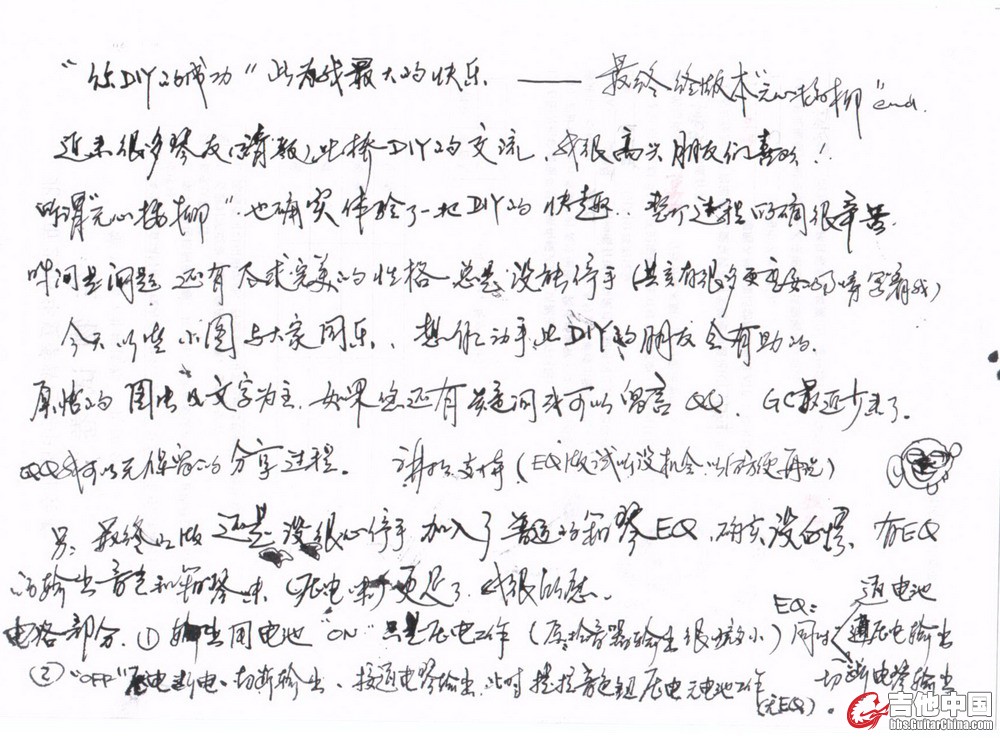 "您DIY的成功"此为我最大的快乐 —— 最终终版本"无心插柳"end.
近来很多琴友(请教)此桥DIY的交流,我很高兴朋友们喜欢!
所谓"无心插柳"也确实体验了一把DIY的快趣..整个过程的确很辛苦.
时间是问题 还有太求完美的性格 总是没能停手(其实有很多更重要的事等着我)
今天以些小图与大家同乐、想你动手此DIY的朋友会有助的.
原帖的图片及文字为主.如果您还有关这问我可以留言QQ. GC最近少来了.
QQ我可以无保留的分享过程. 谢谢支持(EQ版试以没机会以后方便再说)
另:最终的版还是没很心停手加入了普通的箱琴EQ,确实没白累,有EQ
的输出音色和箱琴味(压电味)更足了.我很自慰.
电路部分.①输出用电池"ON"只是压电工作(原拾音器输出很小)同时
EQ: 通电池
通压电输出
切断电琴输出
②"OFF"压电断电、切断输出、接通电琴输出.此时提拉音色钮压电无电池工作(无EQ).
吉他中国
bbs.GuitarChina.com